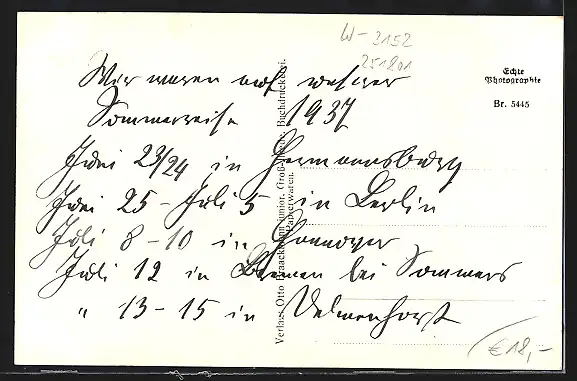 W-3152
251801
Echte
Photographie
Br. 5445
Wir waren auf unserer
Sommerreise 1937
Juni 23/24 in Hermannsburg
Juni 25 - Juli 5 in Berlin
Juli 8-10 in Hannover
Juli 12 in Bremen bei Sommers
" 13-15 in Delmenhorst
Verlag: Otto junior, Buchdruckerei.
Papierwaren.
€18,-